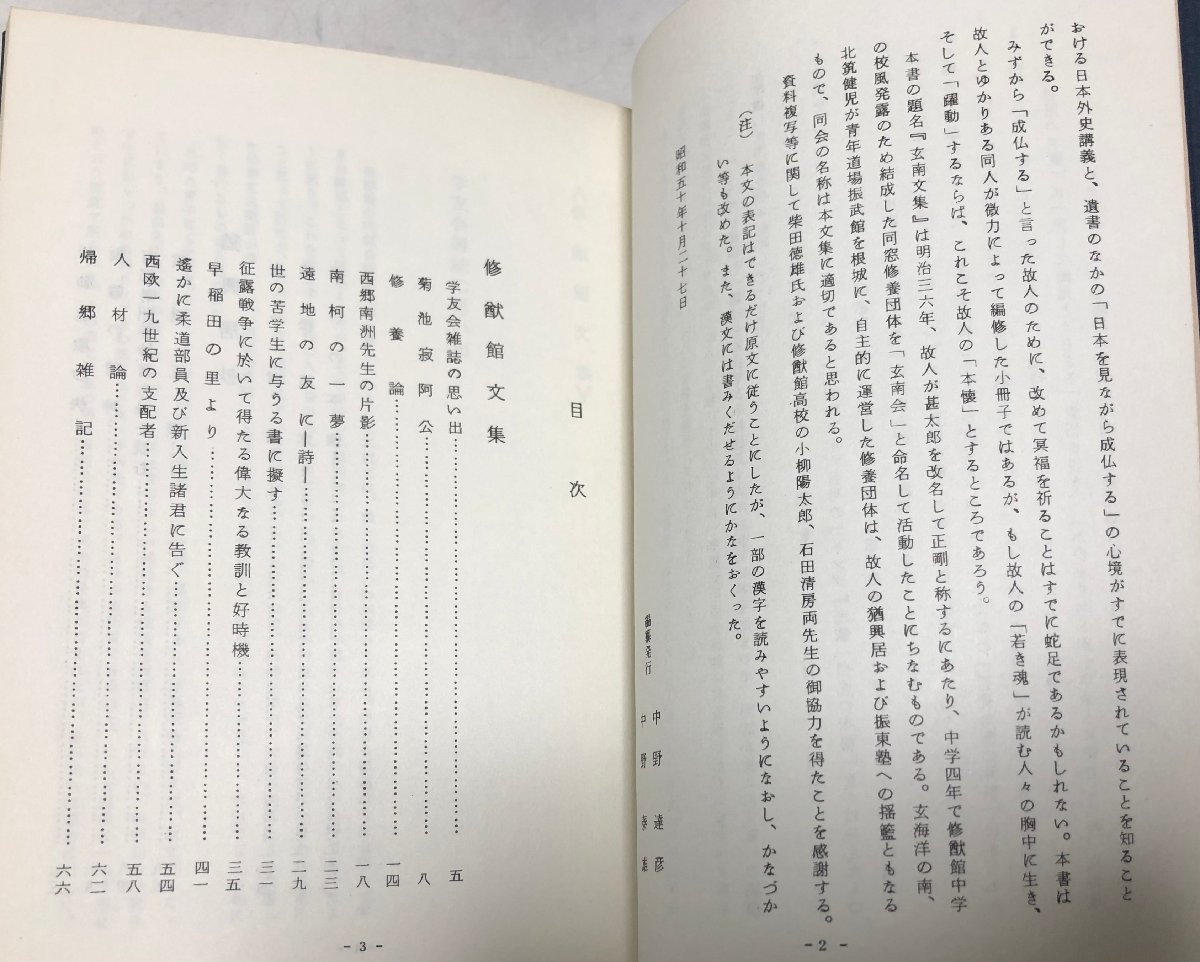 おける日本外史講義と、遺書のなかの「日本を見ながら成仏する」の心境がすでに表現されていることを知ること
ができる。
みずから「成仏する」と言った故人のために、改めて冥福を祈ることはすでに蛇足であるかもしれない。本書は
故人とゆかりある同人が微力によって編修した小冊子ではあるが、もし故人の「若き魂」が読む人々の胸中に生き、
そして「躍動」するならば、これこそ故人の「本懐」とするところであろう。
本書の題名『玄南文集』は明治三六年、故人が甚太郎を改名して正剛と称するにあたり、中学四年で修猷館中学
の校風発露のため結成した同窓修養団体を「玄南会」と命名して活動したことにちなむものである。玄海洋の南、
北筑健児が青年道場振武館を根城に、自主的に運営した修養団体は、故人の猶興居および振東塾への揺籃ともなる
もので、同会の名称は本文集に適切であると思われる。
資料複写等に関して柴田徳雄氏および修猷館高校の小柳陽太郎、石田清房両先生の御協力を得たことを感謝する。
(注) 本文の表記はできるだけ原文に従うことにしたが、一部の漢字を読みやすいようになおし、かなづか
い等も改めた。また、漢文には書みくだせるようにかなをおくった。
昭和五十年十月二十七日
編集発行 中野達彦
中野泰雄
- 2 -
目次
修猷館文集
学友会雑誌の思い出……五
菊池寂阿公……八
修養論……一四
西郷南洲先生の片影……一八
南柯の一夢……二三
遠地の友に―詩―……二九
世の苦学生に与うる書に擬す……三一
征露戦争に於いて得たる偉大なる教訓と好時機……三五
早稲田の里より……四一
遙かに柔道部員及び新入生諸君に告ぐ……五四
西欧一九世紀の支配者……五八
人材論……六二
帰郷雑記……六六
- 3 -